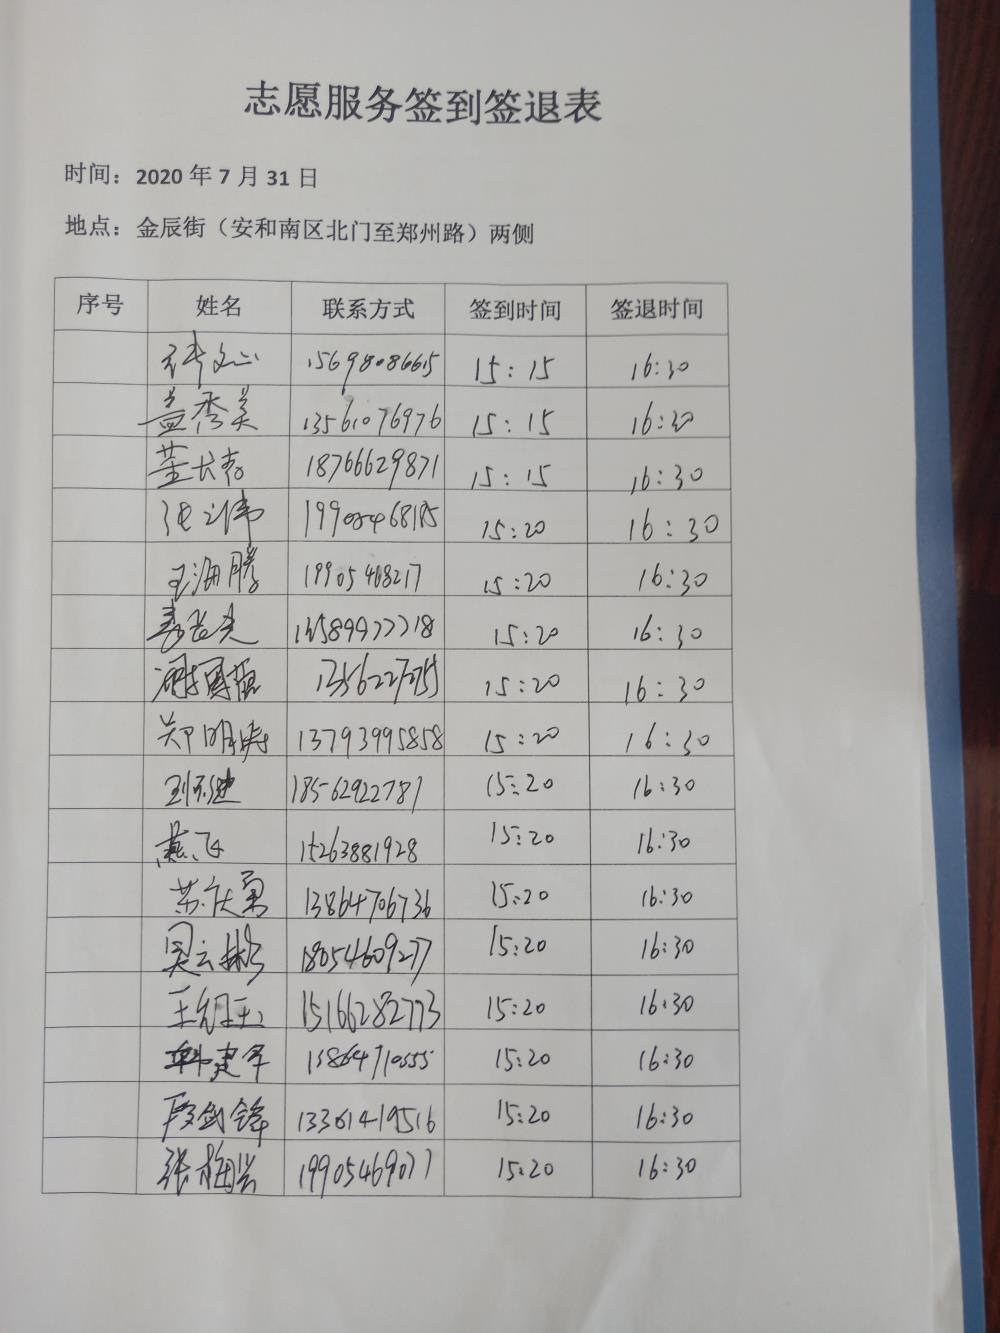 志愿服务签到签退表
时间：2020 年 7 月 31 日
地点：金辰街（安和南区北门至郑州路）两侧
序号 姓名 联系方式 签到时间 签退时间
15698086615 15:15 16:30
盖秀美 13561076976 15:15 16:30
董长春 18766629871 15:15 16:30
张之伟 15:20 16:30
王海腾 19905468217 15:20 16:30
15:20 16:30
15:20 16:30
郑明 13793995858 15:20 16:30
18562922787 15:20 16:30
燕飞 15263881928 15:20 16:30
苏庆勇 13864706736 15:20 16:30
吴云彬 18054609277 15:20 16:30
王 15166282773 15:20 16:30
韩建军 13864710555 15:20 16:30
段剑锋 13361419516 15:20 16:30
张梅兰 19905469077 15:20 16:30